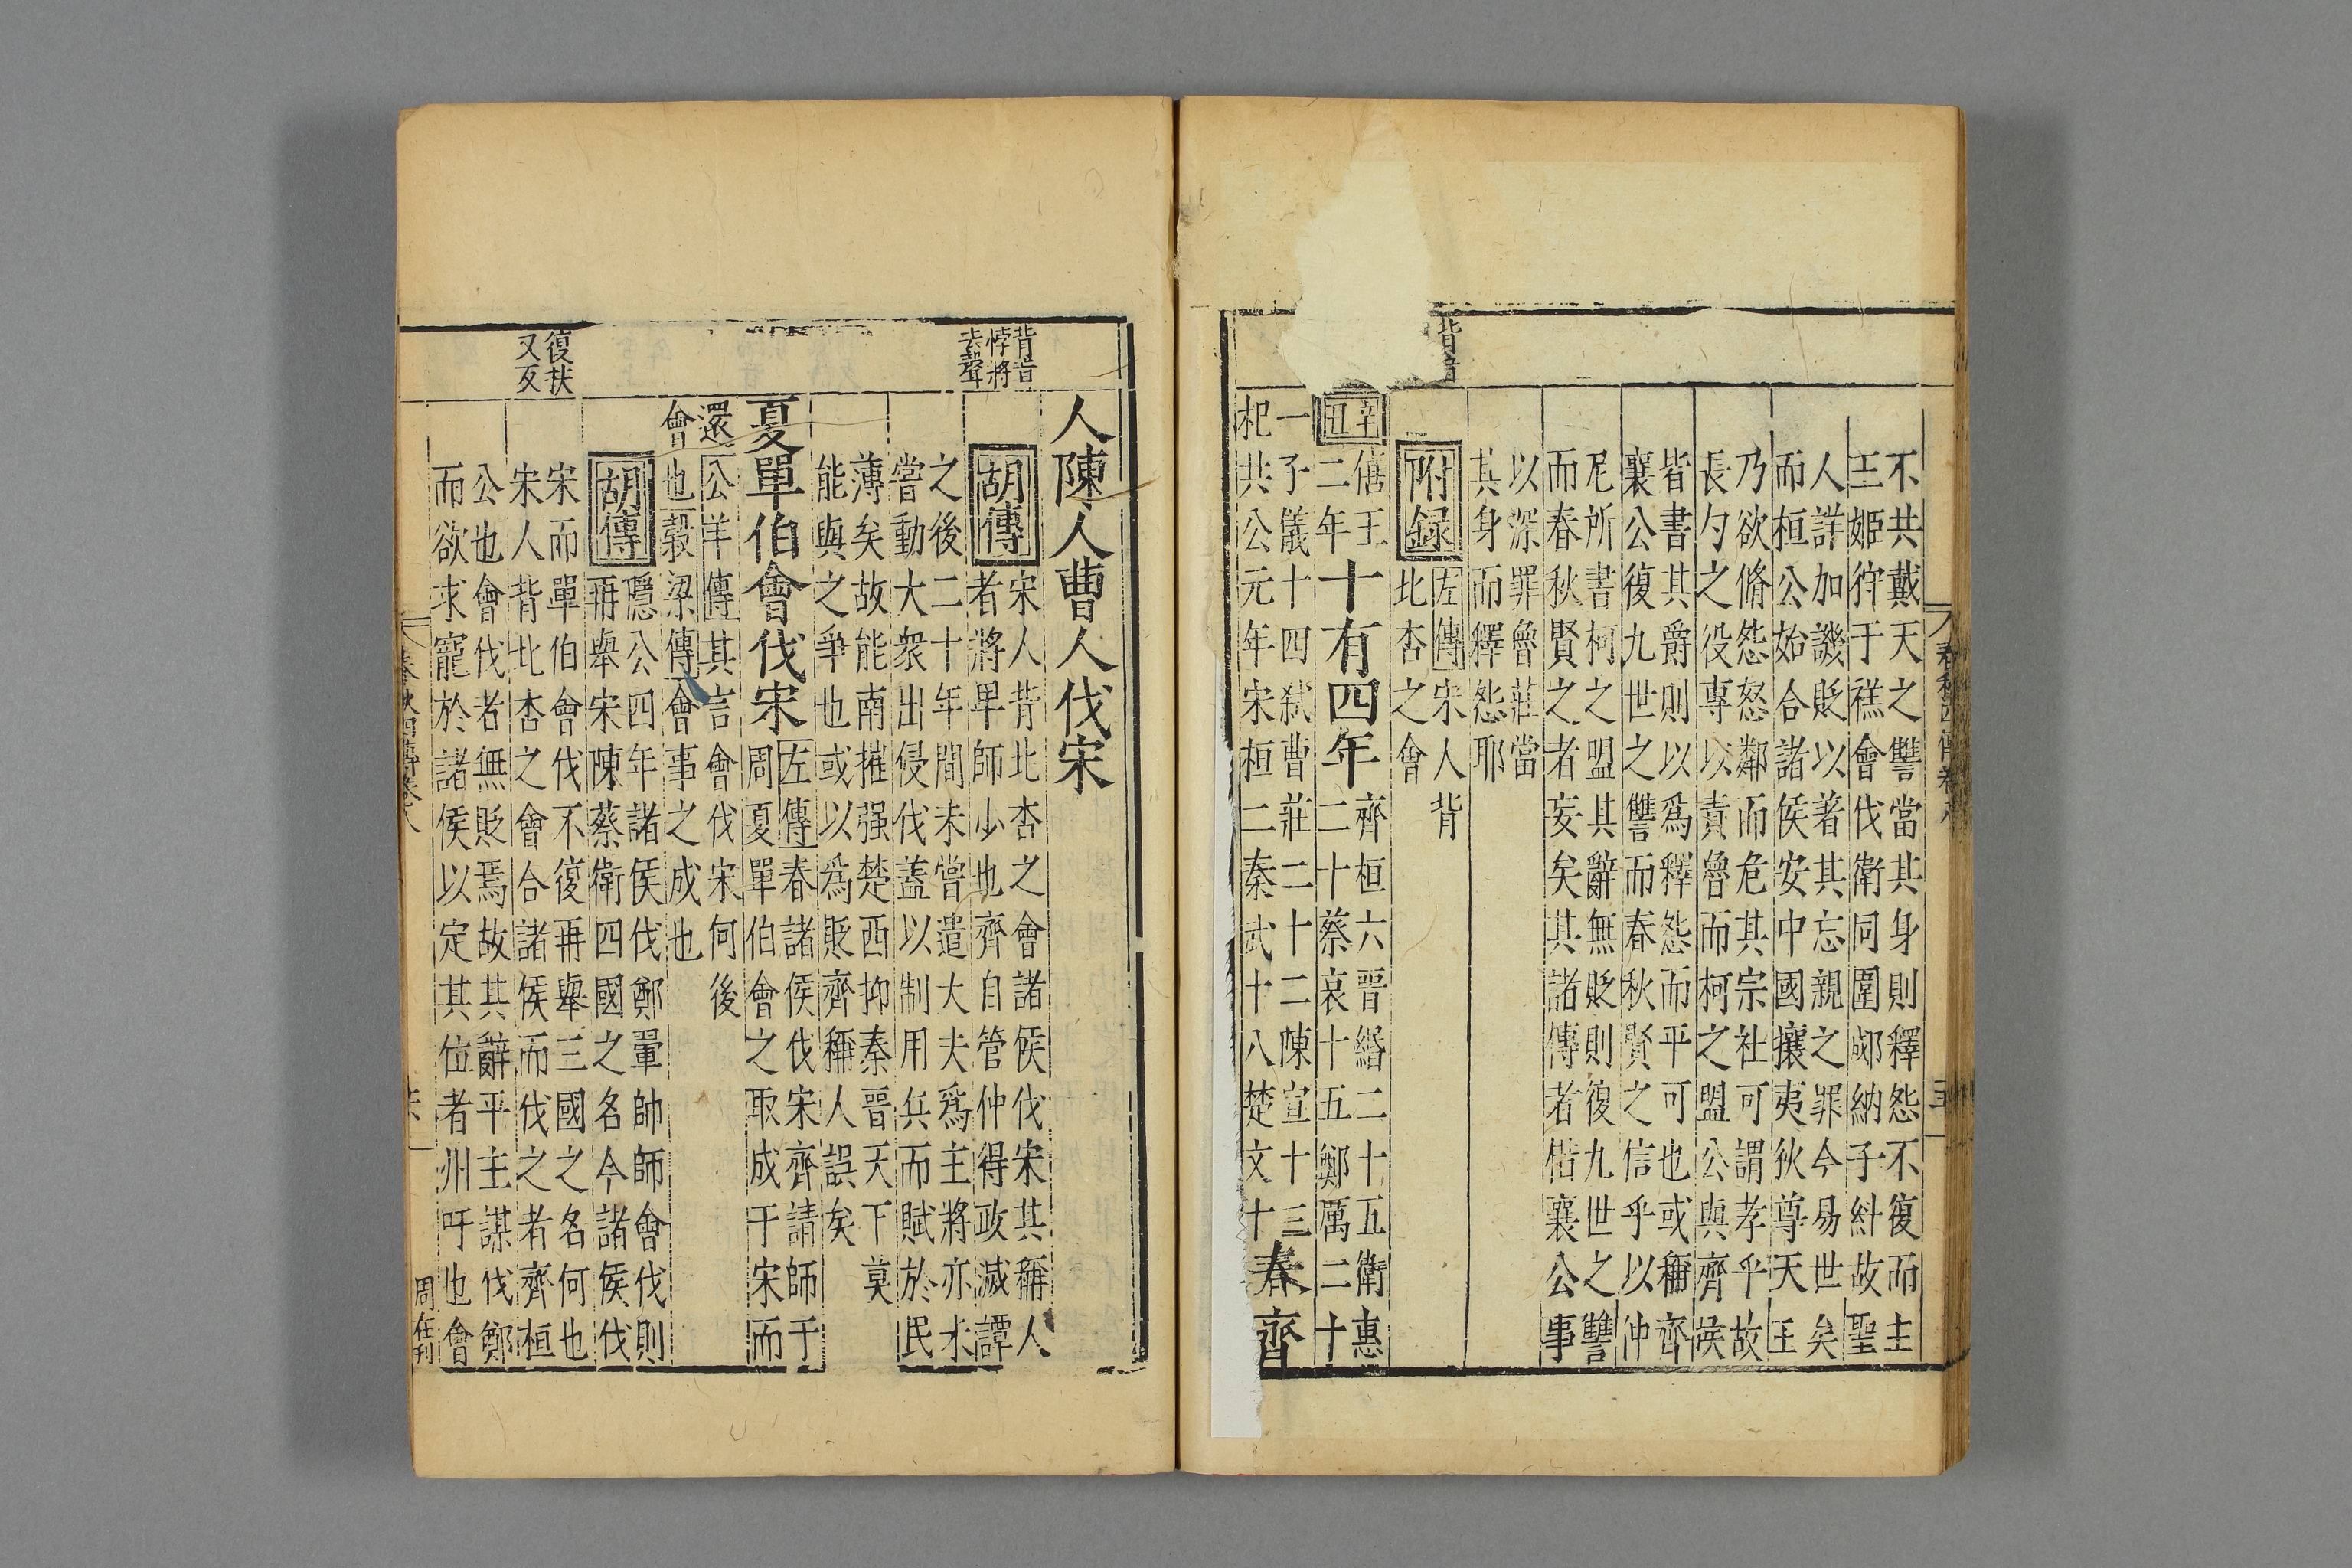 春秋四傳卷八
五
不共戴天之讐當其身則釋怨不復而主
王姬狩于禚會伐衛同圍郕納子糾故聖
人詳加譏貶以著其忘親之罪今易世矣
而桓公始合諸侯安中國攘夷狄尊天王
乃欲脩怨怒鄰而危其宗社可謂孝乎故
長勺之役專以責魯而柯之盟公與齊侯
皆書其爵則以爲釋怨而平可也或稱齊
襄公復九世之讐而春秋賢之信乎以仲
尼所書柯之盟其辭無貶則復九世之讐
而春秋賢之者妄矣其諸傳者借襄公事
以深罪魯莊當
其身而釋怨耶
背音
附録
左傳宋人背
北杏之會
辛丑
僖王
二年
十有四年
齊桓六晉緡二十五衛惠
二十蔡哀十五鄭厲二十
一子儀十四弑曹莊二十二陳宣十三
杞共公元年宋桓二秦武十八楚文十
春齊
人陳人曹人伐宋
背音
悖將
去聲
胡傳
宋人背北杏之會諸侯伐宋其稱人
者將卑師少也齊自管仲得政滅譚
之後二十年間未嘗遣大夫爲主將亦未
嘗動大衆出侵伐蓋以制用兵而賦於民
薄矣故能南摧强楚西抑秦晉天下莫
能與之爭也或以爲貶齊稱人誤矣
夏單伯會伐宋
左傳春諸侯伐宋齊請師于
周夏單伯會之取成于宋而
還
會
公羊傳其言會伐宋何後
也穀梁傳會事之成也
胡傳
隱公四年諸侯伐鄭翬帥師會伐則
再舉宋陳蔡衛四國之名今諸侯伐
復扶
又反
宋而單伯會伐不復再舉三國之名何也
宋人背北杏之會合諸侯而伐之者齊桓
公也會伐者無貶焉故其辭平主謀伐鄭
而欲求寵於諸侯以定其位者州吁也會
春秋四傳卷八
六
周在刊